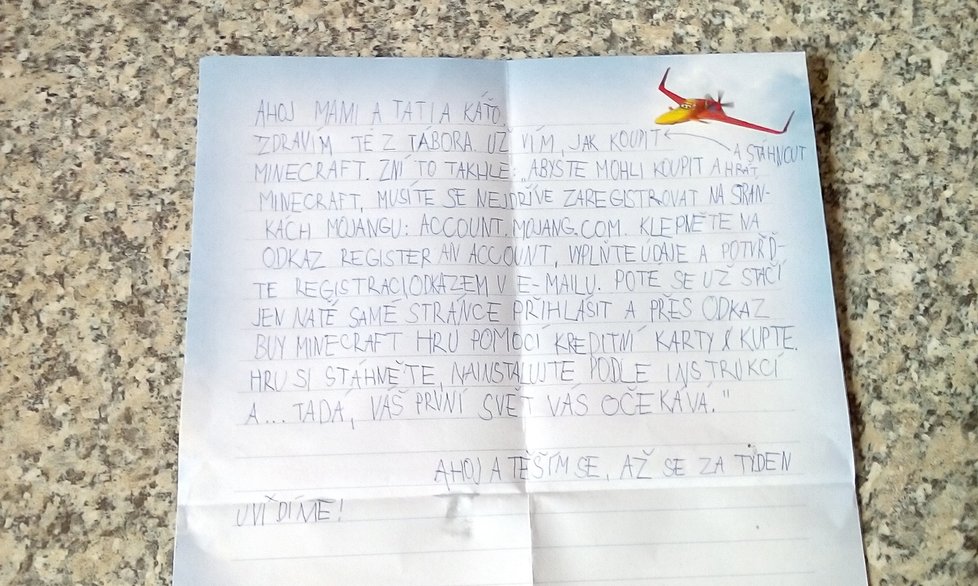 AHOJ MAMI A TATI A KÁŤO.
ZDRAVÍM TĚ Z TÁBORA. UŽ VÍM, JAK KOUPIT
A STÁHNOUT
MINECRAFT. ZNÍ TO TAKHLE: „ABYSTE MOHLI KOUPIT A HRÁT
MINECRAFT, MUSÍTE SE NEJDŘÍVE ZAREGISTROVAT NA STRÁN-
KÁCH MOJANGU: ACCOUNT.MOJANG.COM. KLEPNĚTE NA
ODKAZ REGISTER AN ACCOUNT, VYPLŇTE ÚDAJE A POTVRĎ-
TE REGISTRACI ODKAZEM V E-MAILU. POTÉ SE UŽ STAČÍ
JEN NA TÉ SAMÉ STRÁNCE PŘIHLÁSIT A PŘES ODKAZ
BUY MINECRAFT HRU POMOCÍ KREDITNÍ KARTY KUPTE.
HRU SI STÁHNĚTE, NAINSTALUJTE PODLE INSTRUKCÍ
A... TADÁ, VÁŠ PRVNÍ SVĚT VÁS OČEKÁVÁ."
AHOJ A TĚŠÍM SE, AŽ SE ZA TÝDEN
UVIDÍME!